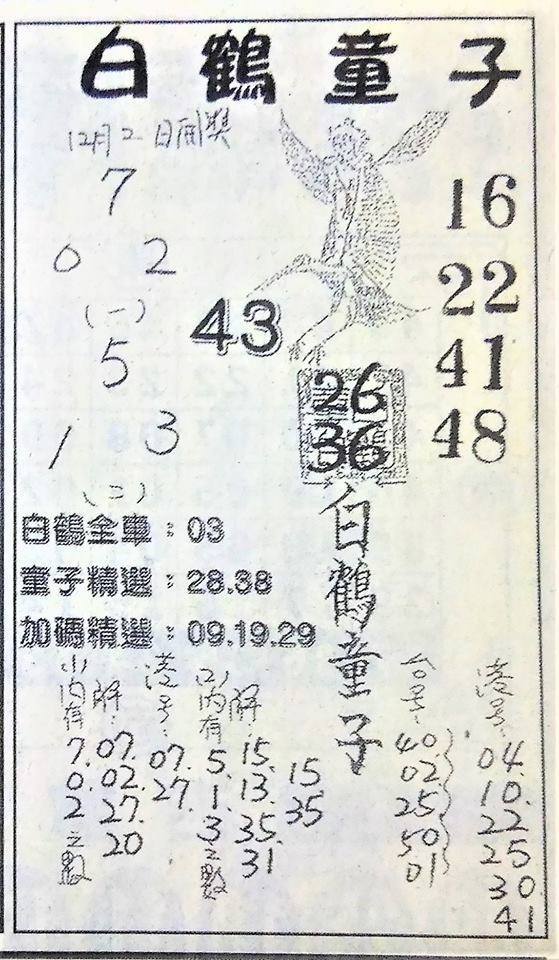 白鶴童子
12月2日開獎
7
0 2
(一)
5
1 3
(二)
43
16
22
41
48
26
36
白鶴童子
白鶴全車：03
童子精選：28.38
加碼精選：09.19.29
(1)內有
7.
0.
2
之數
解：
07.
02.
27.
20
港号：
07.
27.
(2)內有
5.
1.
3
之數
解：
15.
13.
35.
31
15
35
台号：
40
02
25
50
01
港号：
04.
10.
22
25
30
41